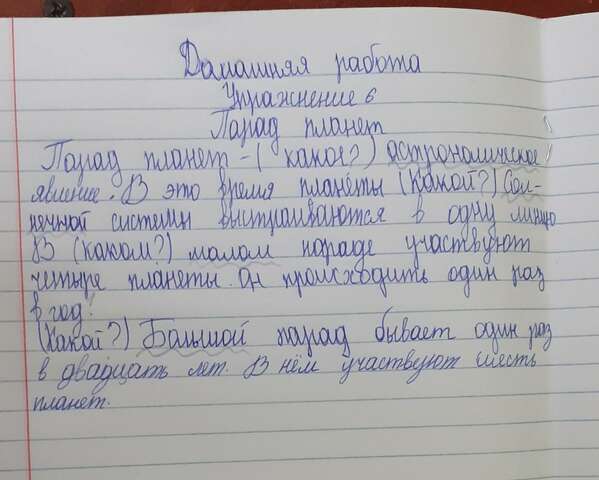 Домашняя работа
Упражнение 6
Парад планет
Парад планет - ( какое?) астрономическое
явление. В это время планеты (какой?) Сол-
нечной системы выстраиваются в одну линию
В (каком?) малом параде участвуют
четыре планеты. Он происходить один раз
в год.
(Какой?) Большой парад бывает один раз
в двадцать лет. В нём участвуют шесть
планет.